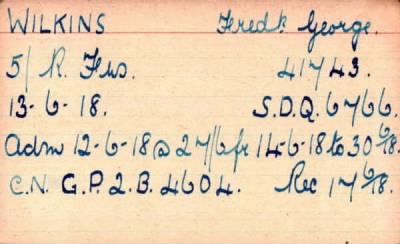 WILKINS Fredk George.
5/ R. Fus. 41743.
13-6-18. S.D.Q. 6766.
adm 12-6-18 @ 27/6 fr 14-6-18 to 30/6/18.
C.N. G.P. 2.B. 4604. Rec 17/6/18.